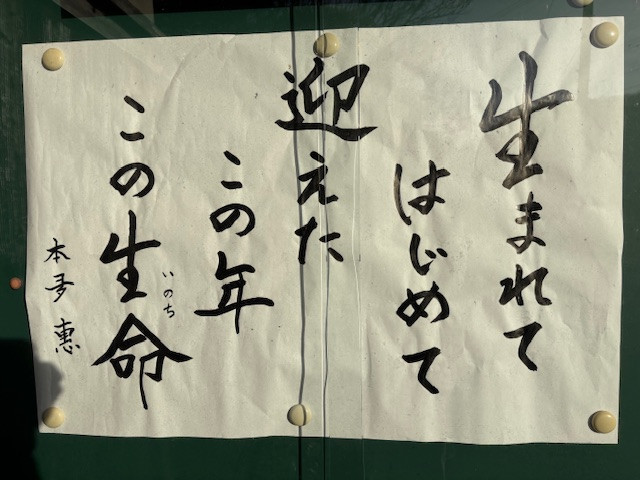 生まれて
はじめて
迎えた
この年
この生命
いのち
本多 惠